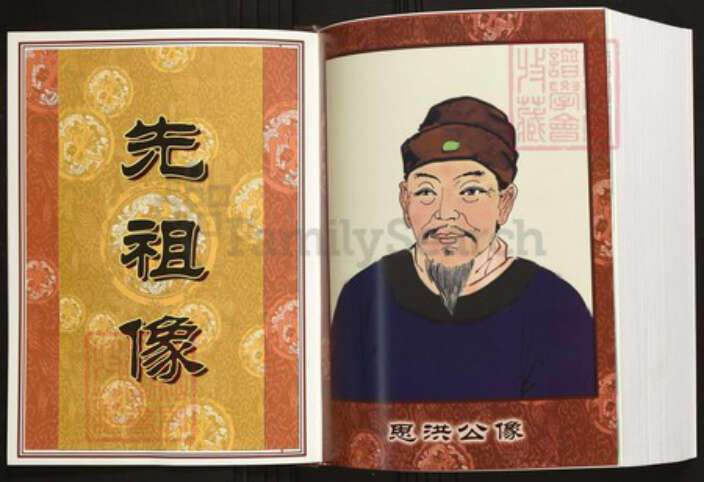 先祖像
思洪公像
譜學會
收藏
FamilySearch